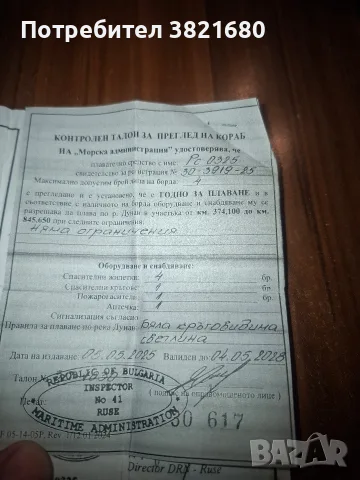 Потребител 3821680
КОНТРОЛЕН ТАЛОН ЗА ПРЕГЛЕД НА КОРАБ
НА „Морска администрация" удостоверява, че
плавателно средство с име: Рс-0385
свидетелство за регистрация № 30-3919-85
Максимално допустим брой лица на борда: 4
е прегледано и е установено, че е ГОДНО ЗА ПЛАВАНЕ и в
съответствие с наличното на борда оборудване и снабдяване му се
разрешава да плава по р. Дунав в участъка от км. 374,100 до км.
845,650 при следните ограничения:
няма ограничения
Оборудване и снабдяване:
Спасителни жилетки: 4 бр.
Спасителни кръгове: 1 бр.
Пожарогасители: 1 бр.
Аптечка: 1
Сигнализация съгласно
Правила за плаване по река Дунав: Бяла кръговидима
светлина
Дата на издаване: 05.05.2025 Валиден до 04.05.2028
Талон №
REPUBLIC OF BULGARIA
INSPECTOR
No 41
RUSE
MARITIME ADMINISTRATION
30 617
F 05-14-05P, Rev. 1/12.01.2024
Director DRX - Ruse
bazar